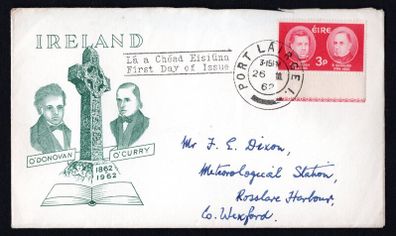 IRELAND
Lá a Chéad Eisiúna
First Day of Issue
PORT LÁIRGE 1
3-15PM
26 III
62
ÉIRE
3p
O'DONOVAN
O'CURRY
1862
1962
Mr F. E. Dixon,
Meteorological Station,
Rosslare Harbour,
Co. Wexford.